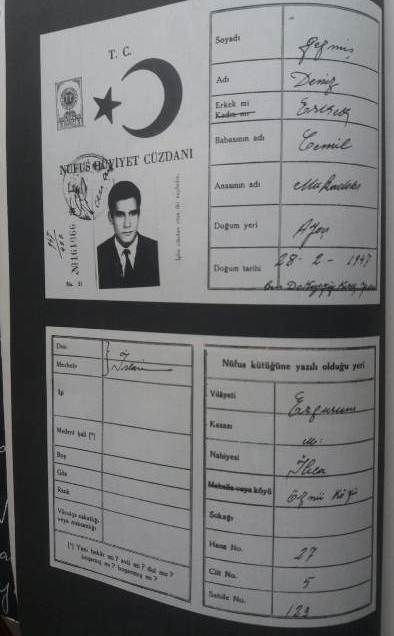 T. C.
NÜFUS HÜVİYET CÜZDANI
No 161966
No. 31
Soyadı Gezmiş
Adı Deniz
Erkek mi Erkek
Kadın mı
Babasının adı Cemil
Anasının adı Mukaddes
Doğum yeri Ayaş
Doğum tarihi 28 - 2 - 1947
Bin Dokuzyüz Kırk Yedi
Dini
Mezhebi İslâm
İşi
Medenî hali (*)
Boy
Göz
Renk
Vücutça sakatlığı
veya noksanlığı
(*) Yeni bekâr mı? evli mi? dul mu?
boşamış mı? boşanmış mı?
Nüfus kütüğüne yazılı olduğu yeri
Vilâyeti Erzurum
Kazası M.
Nahiyesi Ilıca
Mahalle veya köyü Köyü
Sokağı
Hane No. 27
Cilt No. 5
Sahife No. 123